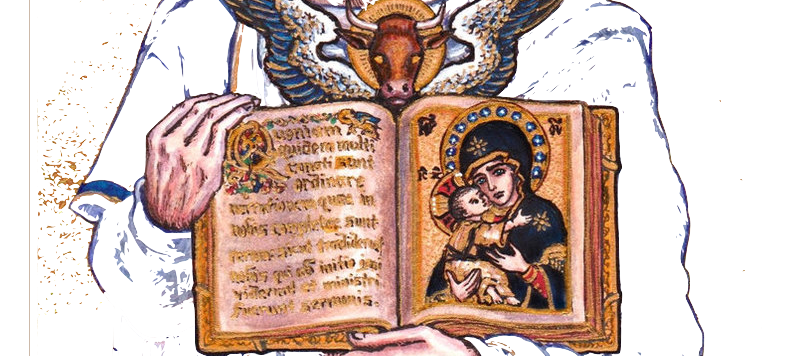 Quoniam
quidem multi
conati sunt
ordinare
narrationem que in
nobis complete sunt
rerum sicut tradiderunt
nobis qi ab initio ipsi
viderunt et ministri
fuerunt sermonis.